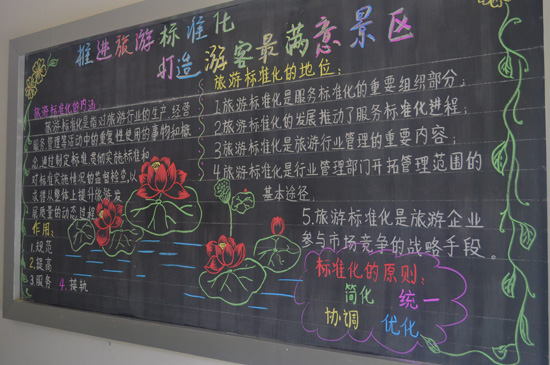 推进旅游标准化
打造游客最满意景区
旅游标准化的内涵
旅游标准化是指对旅游行业的生产、经营
服务管理等活动中的重复性使用的事物和概
念,通过制定标准,贯彻实施标准和
对标准实施情况的监督检查,以
求得从整体上提升旅游发
展质量的动态过程
作用:
1.规范
2.提高
3.服务 4.接轨
旅游标准化的地位:
1.旅游标准化是服务标准化的重要组织部分;
2.旅游标准化的发展推动了服务标准化进程;
3.旅游标准化是旅游行业管理的重要内容;
4.旅游标准化是行业管理部门开拓管理范围的
基本途径;
5.旅游标准化是旅游企业
参与市场竞争的战略手段。
标准化的原则:
简化 统一
协调 优化